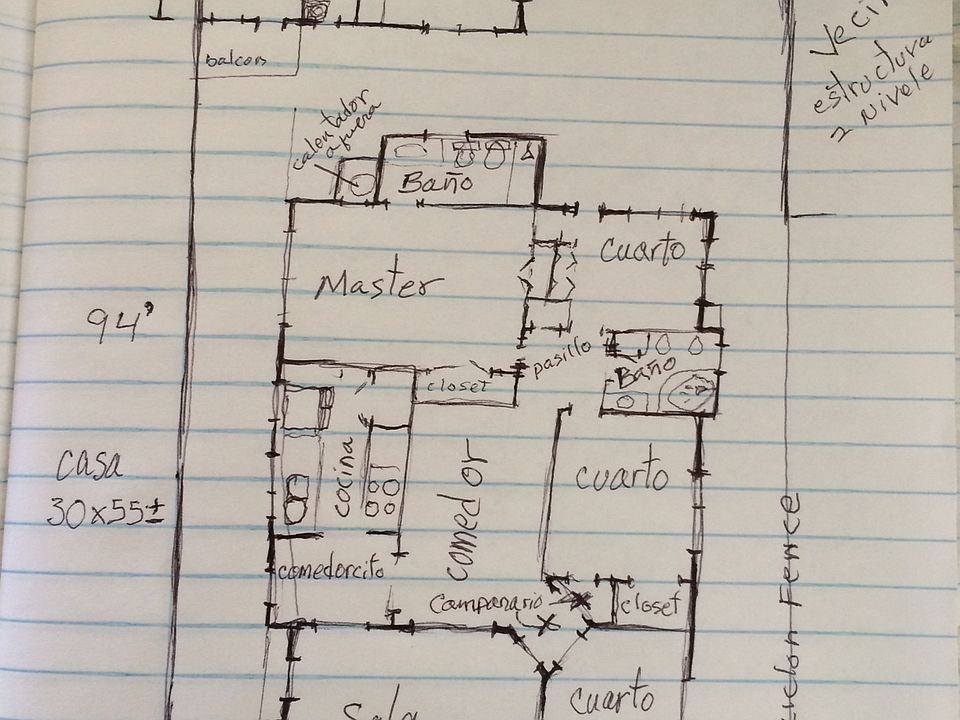 balcon
Veci
estructura
2 nivele
calentador
afuera
Baño
cuarto
Master
94'
pasillo
Baño
closet
casa
30x55±
cocina
comedor
cuarto
comedorcito
Campanario
closet
Sala
cuarto
Fence